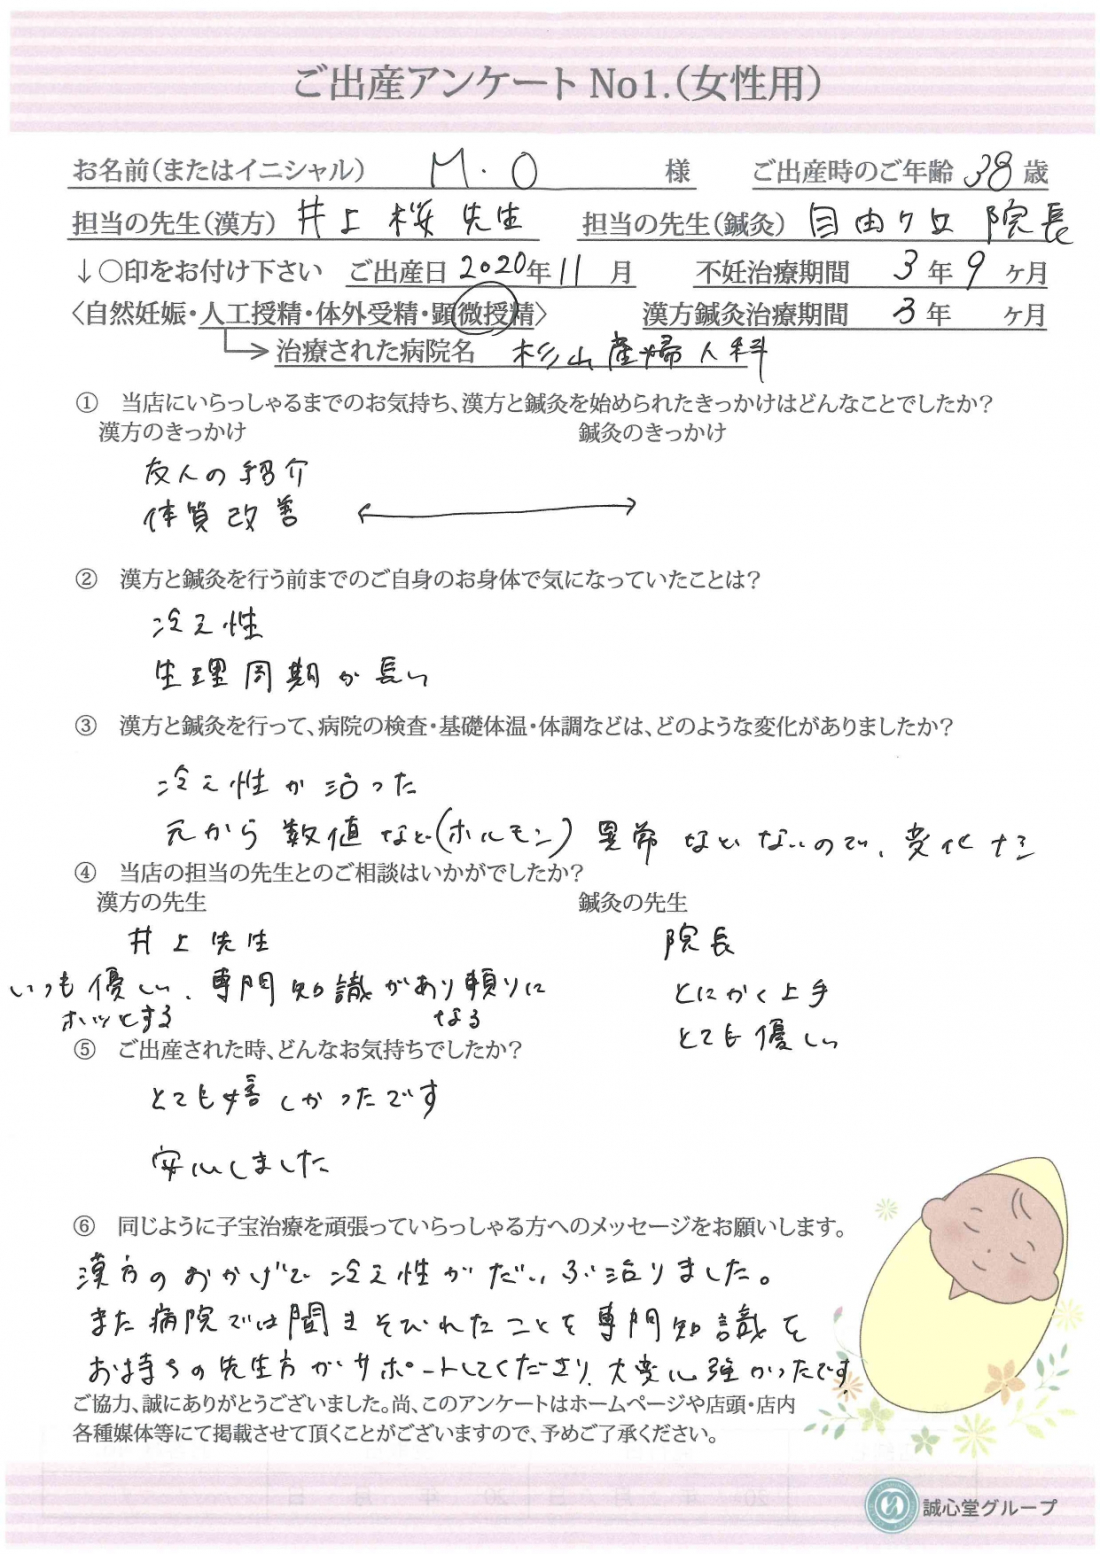 ご出産アンケートNo1.(女性用)
お名前(またはイニシャル) M.O 様 ご出産時のご年齢 38 歳
担当の先生(漢方) 井上 桜 先生 担当の先生(鍼灸) 自由ケ丘 院長
↓○印をお付け下さい ご出産日 2020年 11 月 不妊治療期間 3 年 9 ヶ月
〈自然妊娠・人工授精・体外受精・顕微授精〉 漢方鍼灸治療期間 3 年 ヶ月
治療された病院名 杉山産婦人科
① 当店にいらっしゃるまでのお気持ち、漢方と鍼灸を始められたきっかけはどんなことでしたか?
漢方のきっかけ 鍼灸のきっかけ
友人の紹介
体質改善
② 漢方と鍼灸を行う前までのご自身のお身体で気になっていたことは?
冷え性
生理周期が長い
③ 漢方と鍼灸を行って、病院の検査・基礎体温・体調などは、どのような変化がありましたか?
冷え性が治った
元から数値など(ホルモン)異常などないので、変化なし
④ 当店の担当の先生とのご相談はいかがでしたか?
漢方の先生 鍼灸の先生
井上先生 院長
いつも優しい、専門知識があり頼りに とにかく上手
ホッとする なる とても優しい
⑤ ご出産された時、どんなお気持ちでしたか?
とても嬉しかったです
安心しました
⑥ 同じように子宝治療を頑張っていらっしゃる方へのメッセージをお願いします。
漢方のおかげで冷え性がだいぶ治りました。
また病院では聞きそびれたことを専門知識を
お持ちの先生方がサポートしてくださり、大変心強かったです。
ご協力、誠にありがとうございました。尚、このアンケートはホームページや店頭・店内
各種媒体等にて掲載させて頂くことがございますので、予めご了承ください。
誠心堂グループ